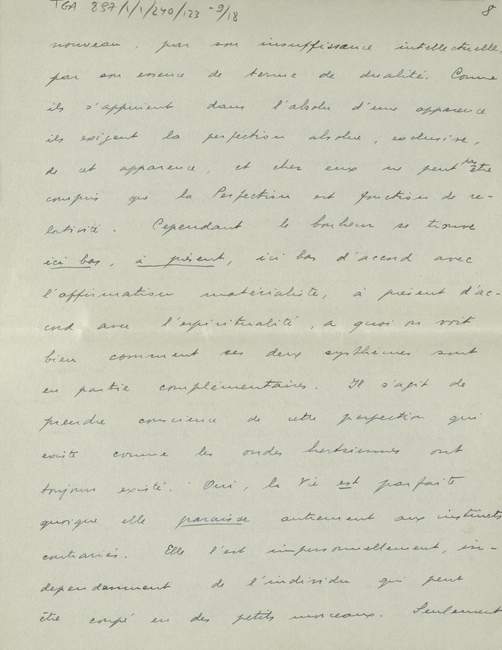 TGA 897/1/1/240/123 -9/18
8
nouveau, par son insuffisance intellectuelle,
par son essence de terme de dualité. Comme
ils s'appuient dans l'absolu d'une apparence
ils exigent la perfection absolue, exclusive,
de cet apparence, et chez eux ne peut pas être
compris que la Perfection est fonction de re-
lativité. Cependant le bonheur se trouve
ici bas, à présent, ici bas d'accord avec
l'affirmation matérialiste, à présent d'ac-
cord avec l'espiritualité, a quoi on voit
bien comment ses deux systhèmes sont
en partie complémentaires. Il s'agit de
prendre conscience de cette perfection qui
existe comme les ondes hertziennes ont
toujours existé. Oui, la Vie est parfaite
quoique elle paraisse autrement aux instincts
contrariés. Elle l'est impersonnellement, in-
dependamment de l'individu qui peut
être coupé en des petits morceaux. Seulement